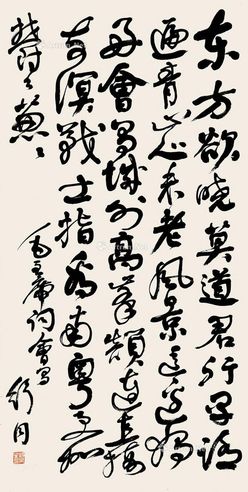 东方欲晓莫道君行早踏
遍青山人未老风景这边独
好會昌城外高峯颠连直接
东溟战士指看南粤更加
郁々葱々
毛主席词會昌
舒同